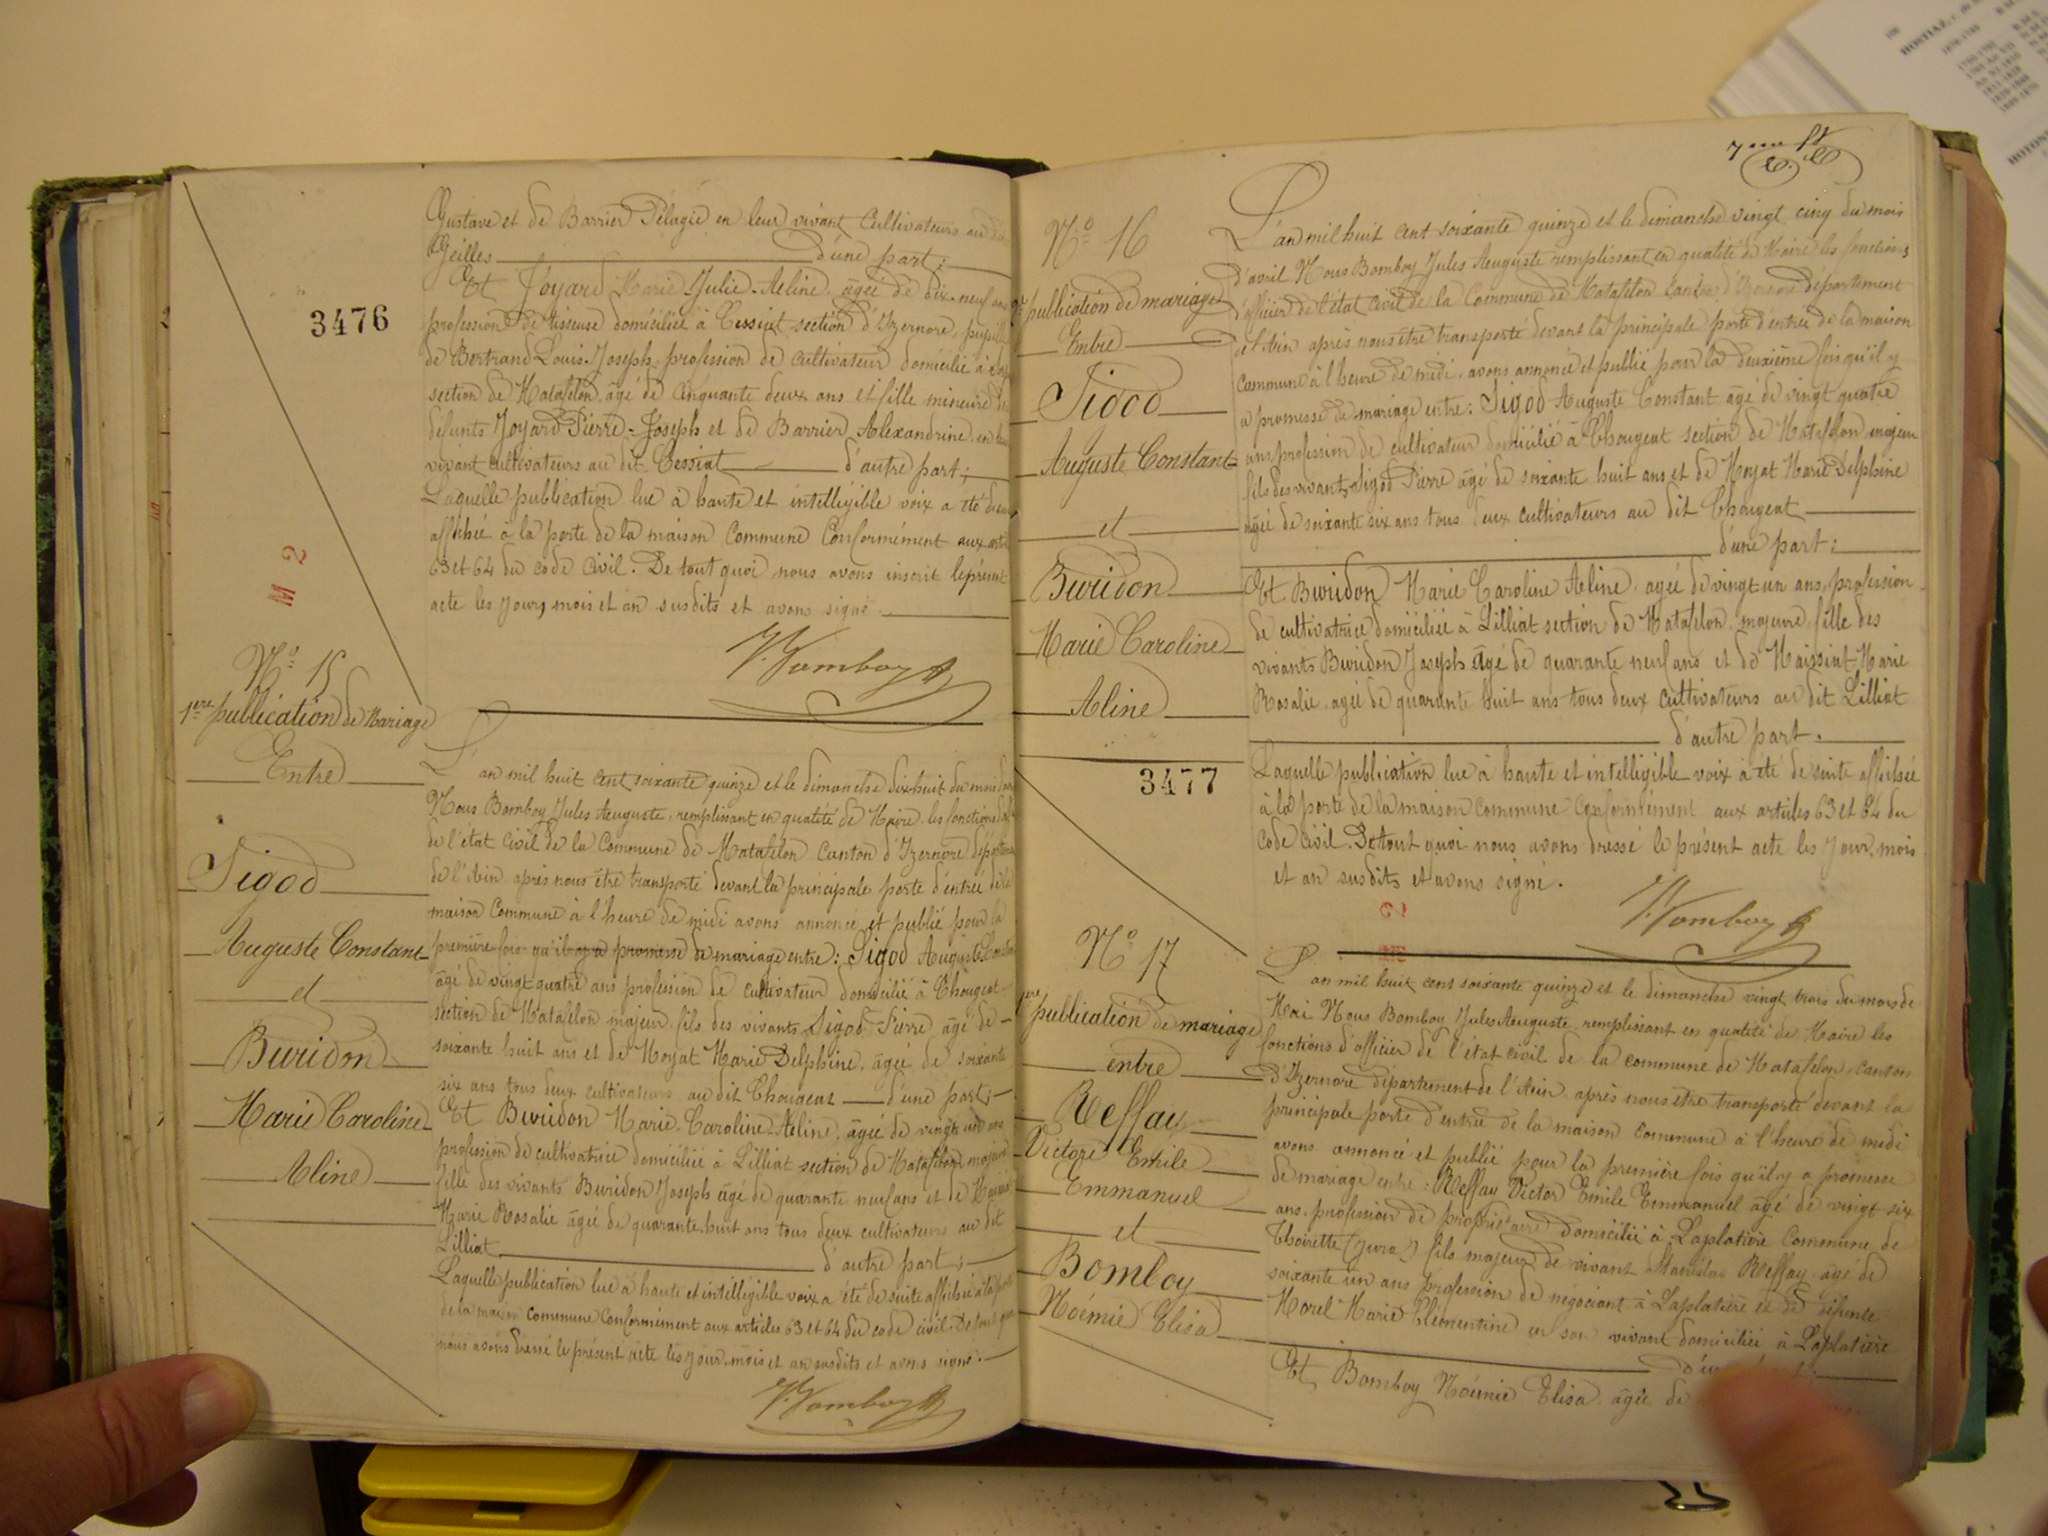 Gustave et de Barrier Pélagie en leur vivant cultivateurs au dit
Geilles d'une part;
3476
Et Joyard Marie Julie Aeline, âgée de dix-neuf ans
profession de tisseuse domiciliée à Tessiat section d'Izernore, pupille
de Bertrand Louis-Joseph profession de cultivateur domicilié à
section de Matafelon, âgé de Cinquante deux ans et fille mineure des
defunts Joyard Pierre-Joseph et de Barrier Alexandrine en leur
vivant cultivateurs au dit Tessiat d'autre part;
Laquelle publication lue à haute et intelligible voix a été de suite
affichée à la porte de la maison Commune Conformément aux arti
63 et 64 du code Civil. De tout quoi nous avons inscrit le présent
acte les jour, mois et an susdits et avons signé.
M 2
J. Bomboy
N° 15
1ère publication de Mariage
Entre
Sigod
Auguste Constant
et
Buridon
Marie Caroline
Aline
L'an mil huit cent soixante quinze et le dimanche dix huit du mois
Nous Bomboy Jules Auguste, remplissant en qualité de Maire, les fonctions
de l'état civil de la Commune de Matafelon Canton d'Izernore départem
de l'Ain, après nous être transporté devant la principale porte d'entrée de la
maison Commune à l'heure de midi avons annoncé et publié pour la
première fois qu'il y a promesse de mariage entre: Sigod Auguste Constan
âgé de vingt quatre ans profession de cultivateur domicilié à Chougeat
section de Matafelon majeur fils des vivants Sigod Pierre âgé de
soixante huit ans et de Moyat Marie Delphine, âgée de soixante
six ans tous deux cultivateurs au dit Chougeat d'une part;
Et Buridon Marie-Caroline-Aeline, âgée de vingt un ans
profession de cultivatrice domiciliée à Lilliat section de Matafelon majeure
fille des vivants Buridon Joseph âgé de quarante neuf ans et de Maissiat
Marie Rosalie âgée de quarante huit ans tous deux cultivateurs au dit
Lilliat d'autre part;
Laquelle publication lue à haute et intelligible voix a été de suite affichée à la porte
de la maison commune Conformément aux articles 63 et 64 du code civil. De tout quoi
nous avons dressé le présent acte les jour, mois et an susdits et avons signé.
J. Bomboy
7me ft
N° 16
2e publication de mariage
Entre
Sigod
Auguste Constant
et
Buridon
Marie Caroline
Aline
3477
L'an mil huit cent soixante quinze et le dimanche vingt cinq du mois
d'avril Nous Bomboy Jules Auguste remplissant en qualité de Maire les fonctions
d'officier de l'état civil de la Commune de Matafelon Canton d'Izernore département
de l'Ain après nous être transporté devant la principale porte d'entrée de la maison
Commune à l'heure de midi, avons annoncé et publié pour la deuxième fois qu'il y
a promesse de mariage entre: Sigod Auguste Constant âgé de vingt quatre
ans profession de cultivateur domicilié à Chougeat section de Matafelon majeur
fils des vivants Sigod Pierre âgé de soixante huit ans et de Moyat Marie Delphine
âgée de soixante six ans tous deux cultivateurs au dit Chougeat
d'une part;
Et Buridon Marie Caroline Aeline, âgée de vingt un ans, profession
de cultivatrice domiciliée à Lilliat section de Matafelon, majeure fille des
vivants Buridon Joseph âgé de quarante neuf ans et de Maissiat Marie
Rosalie, âgée de quarante huit ans tous deux cultivateurs au dit Lilliat
d'autre part.
Laquelle publication lue à haute et intelligible voix à été de suite affichée
à la porte de la maison commune Conformément aux articles 63 et 64 du
Code Civil. De tout quoi nous avons dressé le présent acte les jour, mois
et an susdits et avons signé.
J. Bomboy
N° 17
1ère publication de mariage
entre
Reffay
Victore Emile
Emmanuel
et
Bomboy
Noémie Elisa
L'an mil huit cent soixante quinze et le dimanche vingt trois du mois de
Mai Nous Bomboy Jules Auguste remplissant en qualité de Maire les
fonctions d'officier de l'état civil de la commune de Matafelon, canton
d'Izernore département de l'Ain après nous être transporté devant la
principale porte d'entrée de la maison commune à l'heure de midi
avons annoncé et publié pour la première fois qu'il y a promesse
de mariage entre: Reffay Victor Emile Emmanuel âgé de vingt six
ans, profession de propriétaire domicilié à Laplatière Commune de
Thoirette (Jura) fils majeur de vivant Stanislas Reffay, âgé de
soixante un ans profession de negociant à Laplatière et de defunte
Morel Marie Clémentine en son vivant domiciliée à Laplatière
Et Bomboy Noémie Elisa âgée de